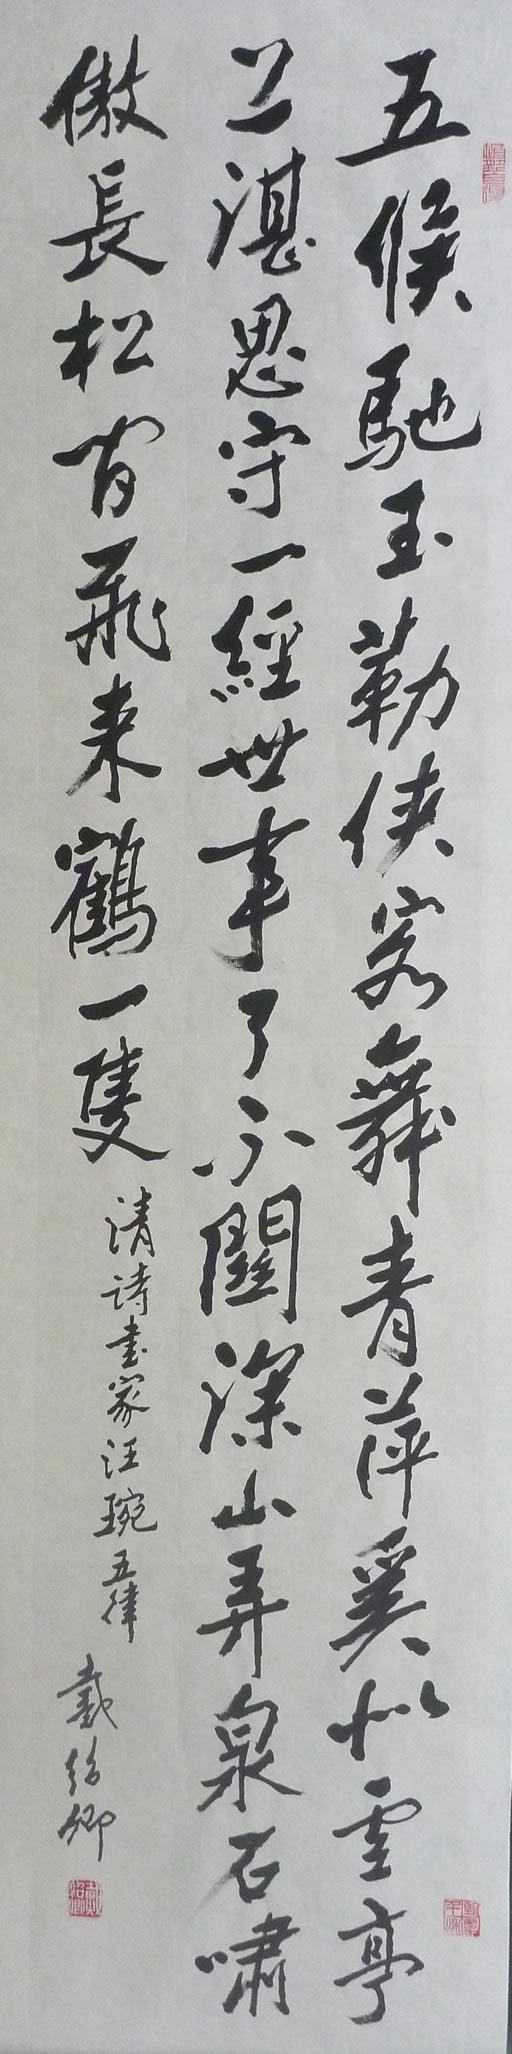 五侯馳玉勒侠客舞青萍奚似雲亭
上湛思守一經世事了不關深山弄泉石嘯
傲長松間飛来鶴一隻
清詩書家汪琬五律
戴绍卿